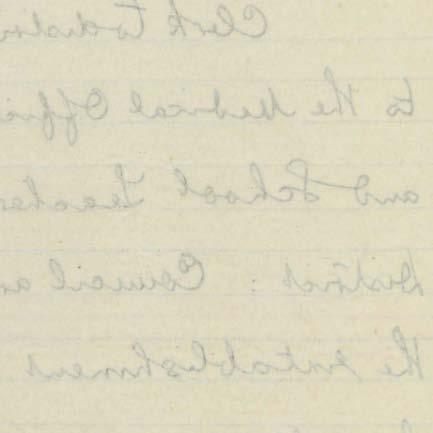 Clerk
to the Medical Offi
and School Teache
District : Council an
the establishment